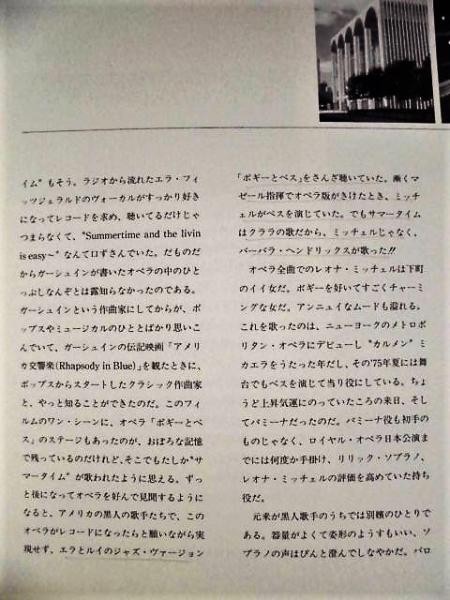 イム”もそう。ラジオから流れたエラ・フィ
ッツジェラルドのヴォーカルがすっかり好き
になってレコードを求め、聴いてるだけじゃ
つまらなくて、“Summertime and the livin
is easy～”なんて口ずさんでいた。だものだ
からガーシュインが書いたオペラの中のひと
っぷしなんぞとは露知らなかったのである。
ガーシュインという作曲家にしてからが、ポ
ップスやミュージカルのひととばかり思いこ
んでいて、ガーシュインの伝記映画「アメリ
カ交響楽(Rhapsody in Blue)」を観たときに、
ポップスからスタートしたクラシック作曲家
と、やっと知ることができたのだ。このフィ
ルムのワン・シーンに、オペラ「ポギーとベ
ス」のステージもあったのが、おぼろな記憶
で残っているのだけれど、そこでもたしか“サ
マータイム”が歌われたように思える。ずっ
と後になってオペラを好んで見聞するように
なると、アメリカの黒人の歌手たちで、この
オペラがレコードになったらと願いながら実
現せず、エラとルイのジャズ・ヴァージョン
「ポギーとベス」をさんざ聴いていた。漸くマ
ゼール指揮でオペラ版がきけたとき、ミッチ
ェルがベスを演じていた。でもサマータイム
はクララの歌だから、ミッチェルじゃなく、
バーバラ・ヘンドリックスが歌った!!
オペラ全曲でのレオナ・ミッチェルは下町
のイイ女だ。ポギーを好いてすごくチャーミ
ングな女だ。アンニュイなムードも溢れる。
これを歌ったのは、ニューヨークのメトロポ
リタン・オペラにデビューし“カルメン”ミ
カエラをうたった年だし、その'75年夏には舞
台でもベスを演じて当り役にしている。ちょ
うど上昇気運にのっていたころの来日、そし
てパミーナだったのだ。パミーナ役も初手の
ものじゃなく、ロイヤル・オペラ日本公演ま
でには何度か手掛け、リリック・ソプラノ、
レオナ・ミッチェルの評価を高めていた持ち
役だ。
元来が黒人歌手のうちでは別種のひとりで
ある。器量がよくて姿形のようすもいい、ソ
プラノの声はぴんと澄んでしなやかだ。バロ